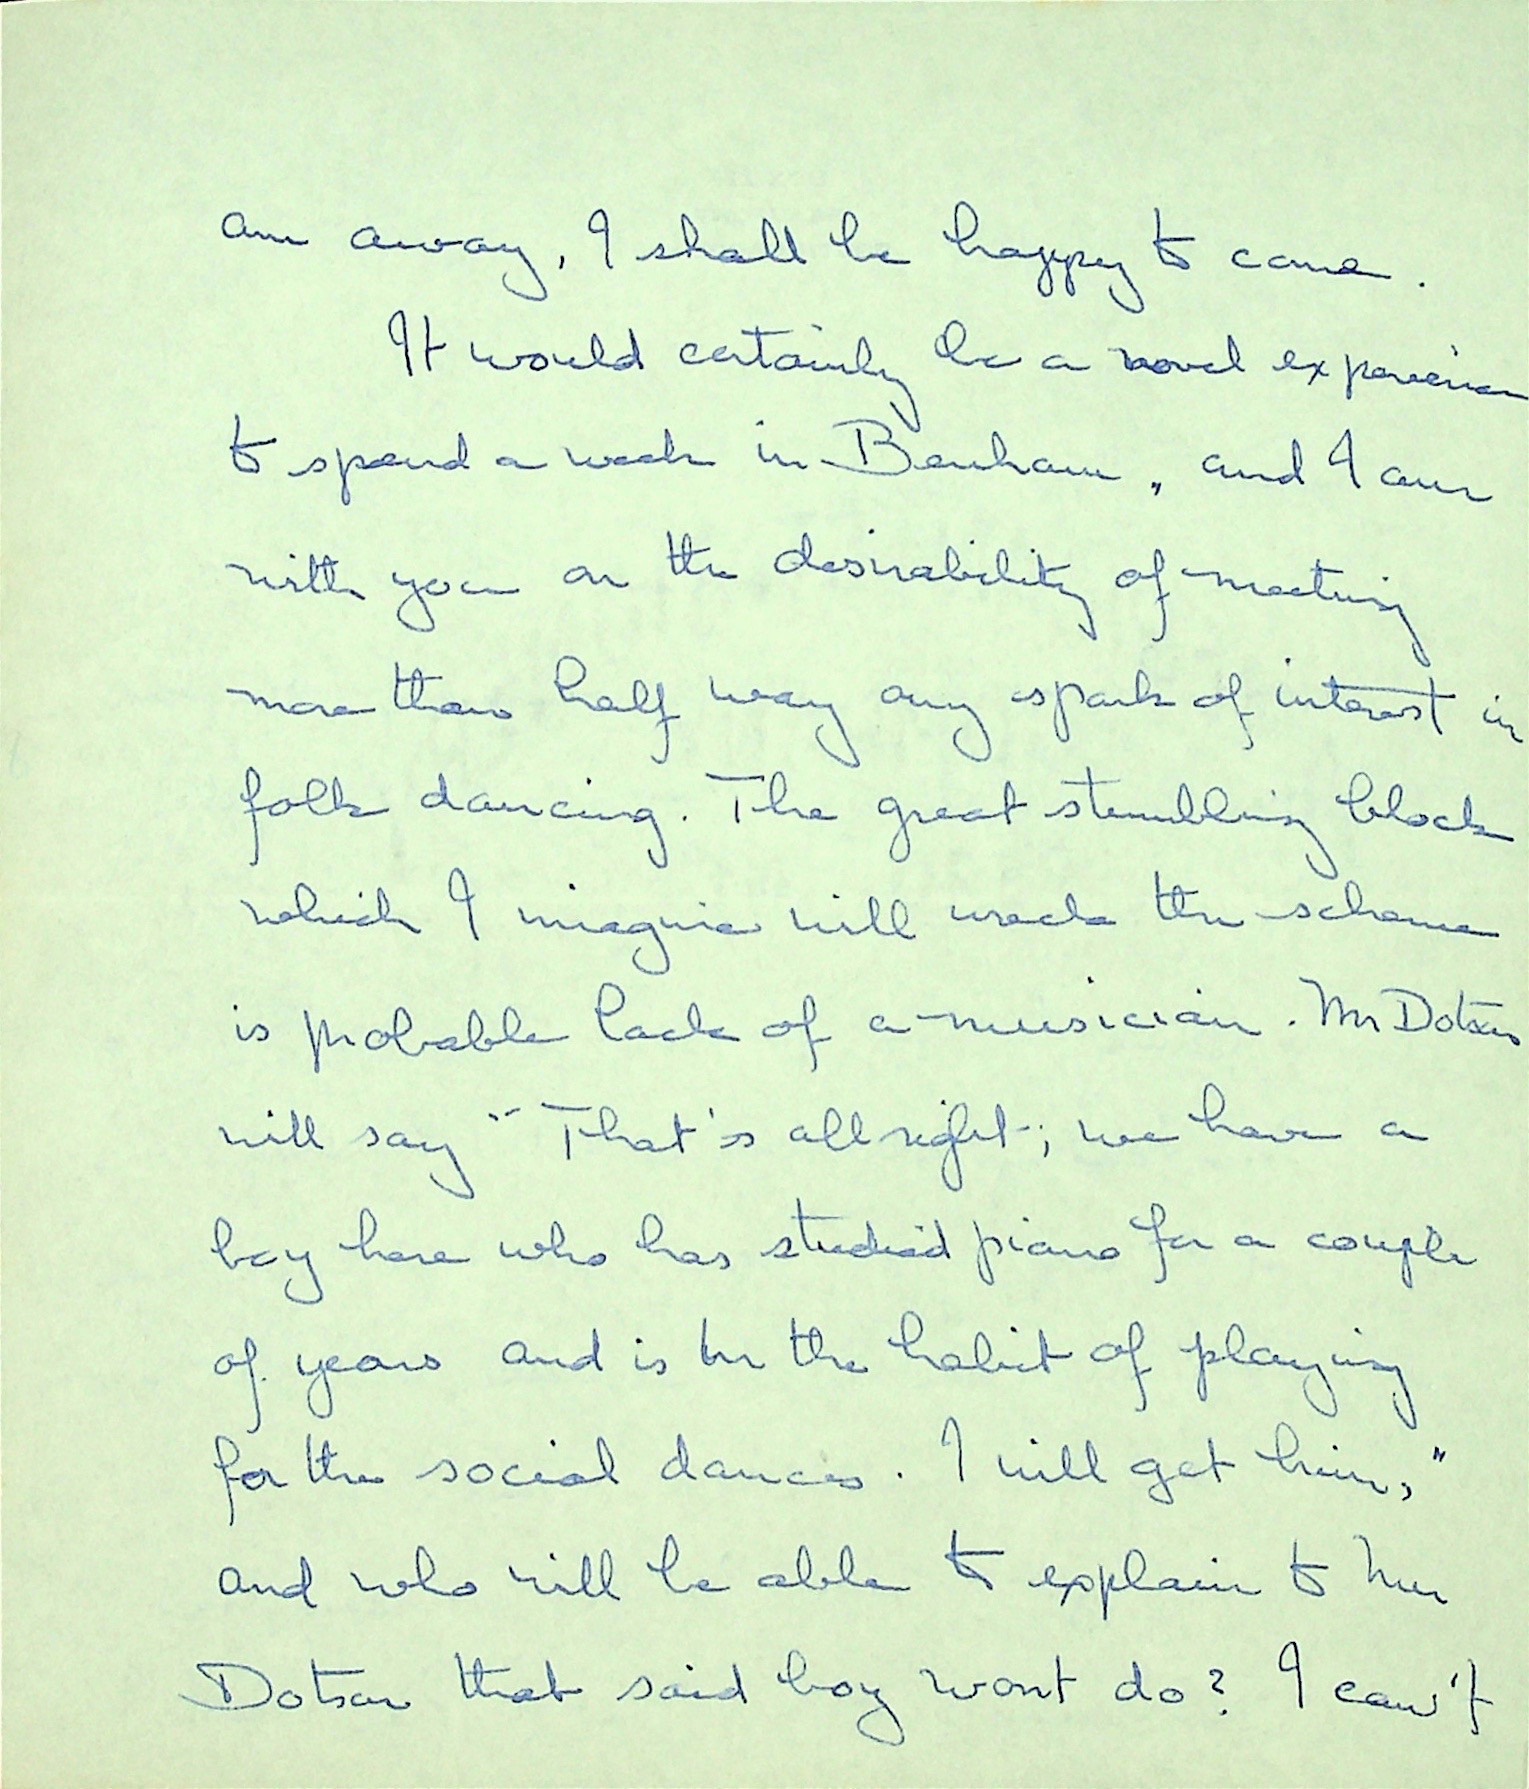 am away, I shall be happy to come.
It would certainly be a novel experience
to spend a week in Benham, and I am
with you on the desirability of meeting
more than half way any spark of interest in
folk dancing. The great stumbling block
which I imagine will wreck the scheme
is probable lack of a musician. Mr Dotson
will say "That's all right; we have a
boy here who has studied piano for a couple
of years and is in the habit of playing
for the social dances. I will get him,"
and who will be able to explain to Mr
Dotson that said boy wont do? I can't